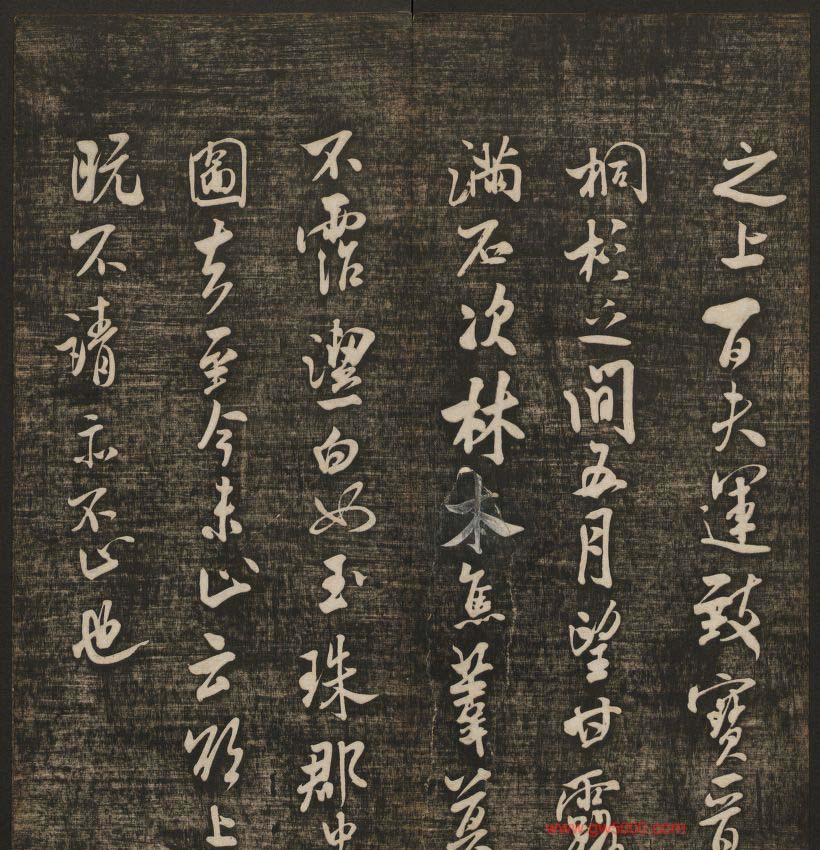 之上百夫運致寶晉
桐杉之間五月望甘露
滿石次林木焦葦莫
不霑潔白如玉珠郡中
圖去至今未止云欲上
既不請亦不止也
www.gws000.com